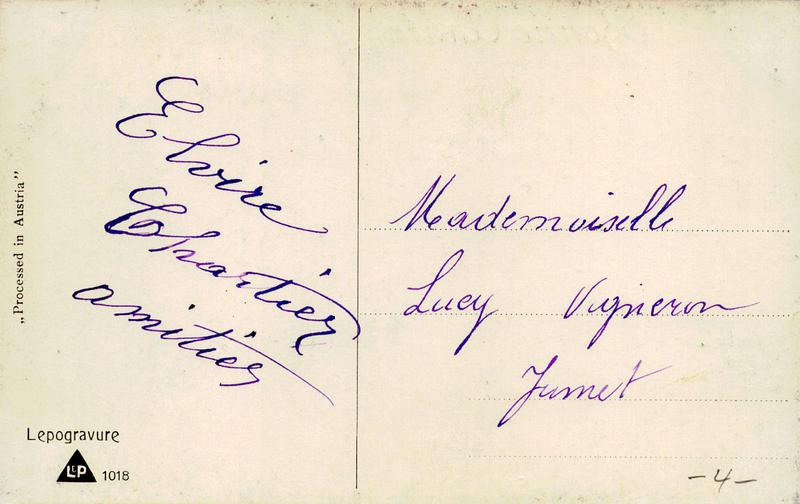 „Processed in Austria”
Elvire
Chartier
amitiés
Mademoiselle
Lucy Vigneron
Jumet
Lepogravure
LEP 1018
-4-